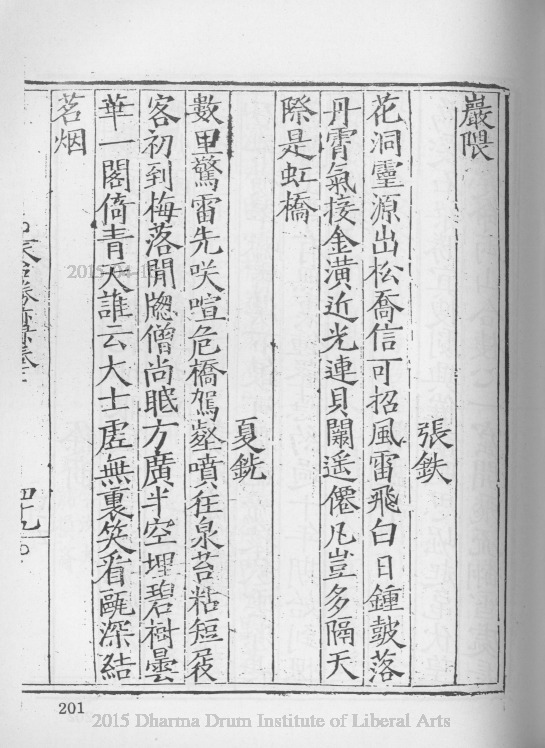 巖隈
張鉄
花洞靈源出松喬信可招風雷飛白日鍾皷落
丹霄氣接金潢近光連貝闕遥僊凡豈多隔天
際是虹橋
夏銑
數里驚雷先咲喧危橋駕壑噴狂泉苔粘短屐
客初到梅落閒牕僧尚眠方廣半空埋碧樹曇
華一閣倚青天誰云大士虗無裏笑看甌深結
茗烟
四十九
201
2015 Dharma Drum Institute of Liberal Arts